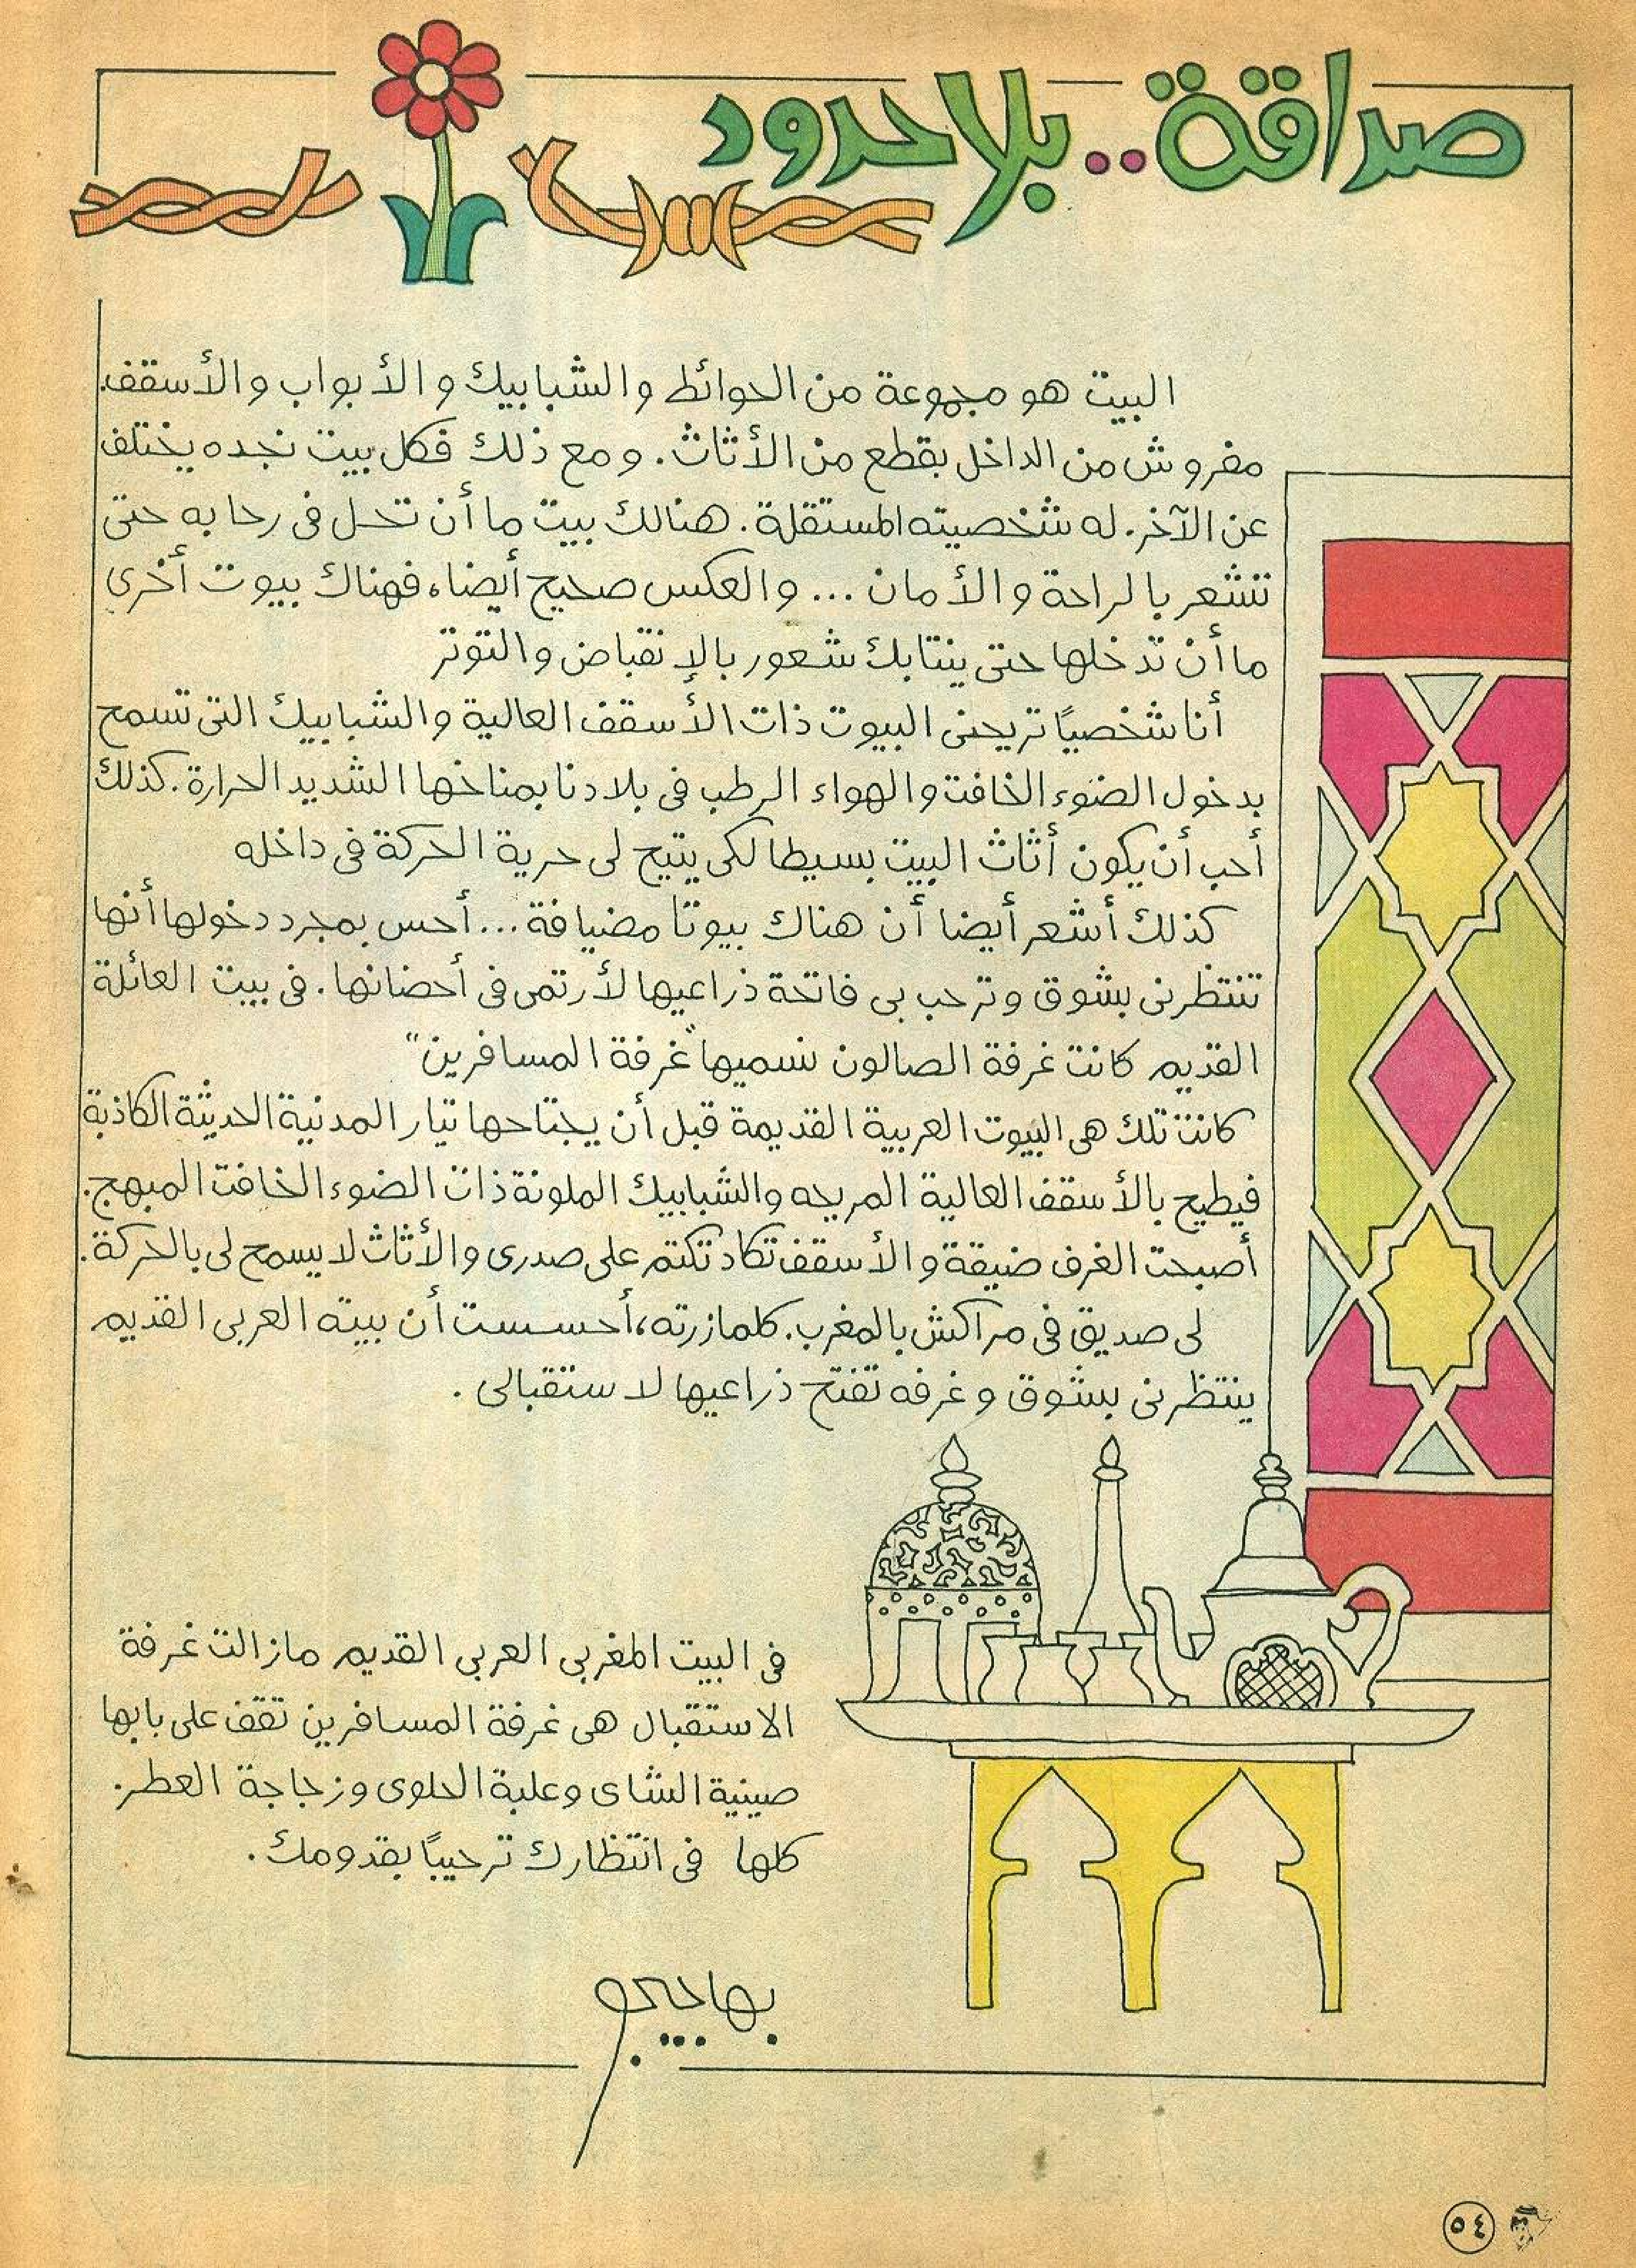 صداقة.. بلا حدود
البيت هو مجموعة من الحوائط والشبابيك والأبواب والأسقف.
مفروش من الداخل بقطع من الأثاث. ومع ذلك فكل بيت نجده يختلف
عن الآخر. له شخصيته المستقلة. هنالك بيت ما أن تحل فى رحابه حتى
تشعر بالراحة والأمان ... والعكس صحيح أيضا، فهناك بيوت أخرى
ما أن تدخلها حتى ينتابك شعور بالإنقباض والتوتر
أنا شخصيًا تريحنى البيوت ذات الأسقف العالية والشبابيك التى تسمح
بدخول الضوء الخافت والهواء الرطب فى بلادنا بمناخها الشديد الحرارة. كذلك
أحب أن يكون أثاث البيت بسيطا لكى يتيح لى حرية الحركة فى داخله
كذلك أشعر أيضا أن هناك بيوتا مضيافة... أحس بمجرد دخولها أنها
تنتظرنى بشوق وترحب بى فاتحة ذراعيها لأرتمى فى أحضانها. فى بيت العائلة
القديم كانت غرفة الصالون نسميها "غرفة المسافرين"
كانت تلك هى البيوت العربية القديمة قبل أن يجتاحها تيار المدنية الحديثة الكاذبة
فيطيح بالأسقف العالية المريحه والشبابيك الملونة ذات الضوء الخافت المبهج.
أصبحت الغرف ضيقة والأسقف تكاد تكتم على صدرى والأثاث لا يسمح لى بالحركة.
لى صديق فى مراكش بالمغرب. كلما زرته، أحسست أن بيته العربى القديم
ينتظرنى بشوق وغرفه تفتح ذراعيها لاستقبالى.
فى البيت المغربى العربى القديم مازالت غرفة
الاستقبال هى غرفة المسافرين تقف على بابها
صينية الشاى وعلبة الحلوى وزجاجة العطر.
كلها فى انتظارك ترحيبًا بقدومك.
بهاجيجو
٥٤